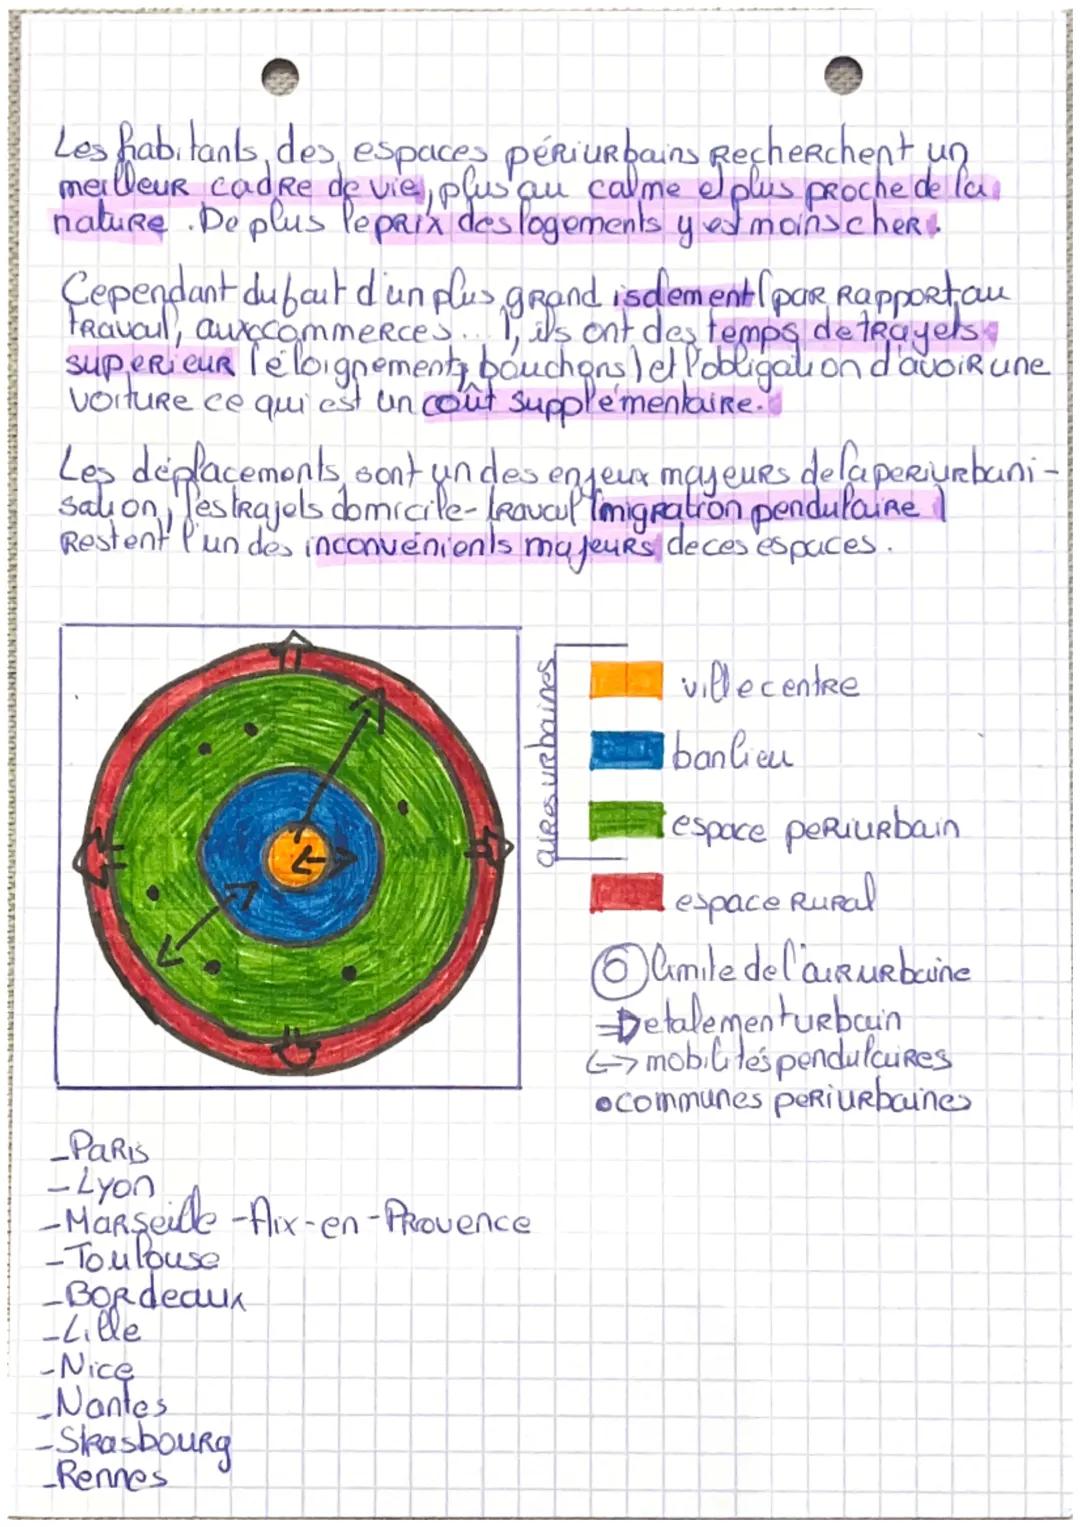 Les habitants des espaces périurbains recherchent un
meilleur cadre de vie, plus au calme et plus proche de la
nature. De plus le prix des logements y est moins cher.
Cependant du fait d'un plus grand isolement (par rapport au
travail, aux commerces...), ils ont des temps de trajets
superieur (éloignement, bouchons) et l'obligation d'avoir une
voiture ce qui est un coût supplémentaire.
Les déplacements sont un des enjeux majeurs de la periurbani-
sation, les trajets domicile-travail (migration pendulaire)
restent l'un des inconvénients majeurs de ces espaces.
aires urbaines
ville centre
banlieu
espace periurbain
espace rural
limite de l'air urbaine
etalement urbain
mobilités pendulaires
communes periurbaines
-Paris
-Lyon
-Marseille -Aix-en-Provence
-Toulouse
-Bordeaux
-Lille
-Nice
-Nantes
-Strasbourg
-Rennes